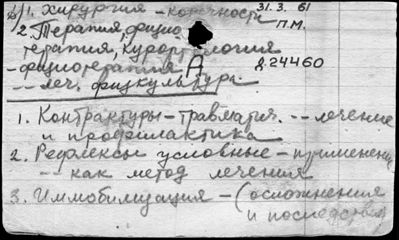 1. Хирургия - конечности
31. 3. 61
П.М.
2. Терапия, физио
терапия, курортология
- физиотерапия А д.24460
-- леч. физкультура.
1. Контрактуры - травматич. -- лечение
и профилактика
2. Рефлексы условные - применение
-- как метод лечения
3. Иммобилизация - (осложнения
и последствия)